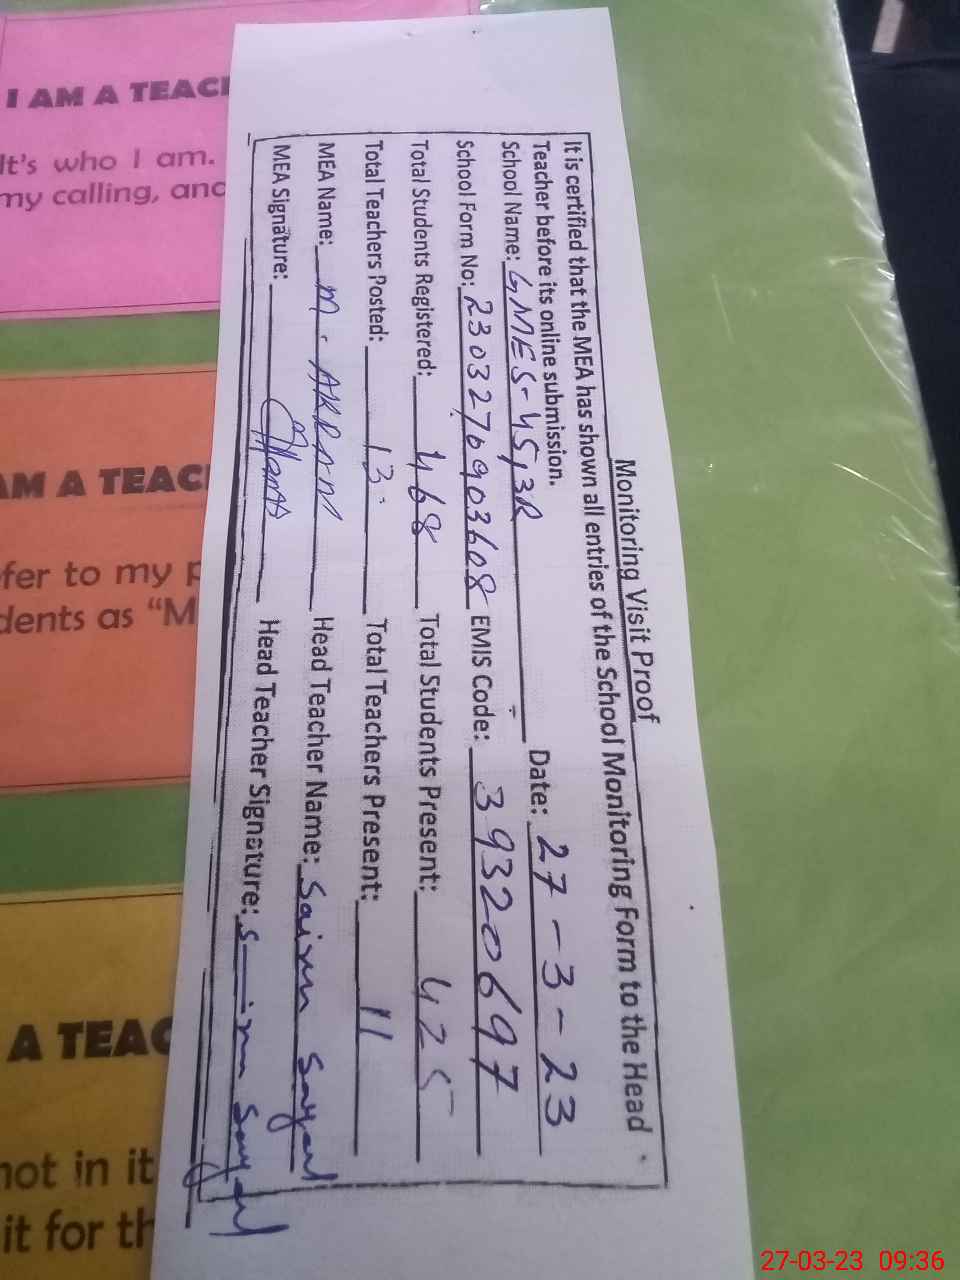 Monitoring Visit Proof
It is certified that the MEA has shown all entries of the School Monitoring Form to the Head
Teacher before its online submission.
School Name: GMES-45,3R Date: 27-3-23
School Form No: 2303276903608 EMIS Code: 39320697
Total Students Registered: 468 Total Students Present: 425
Total Teachers Posted: 13 Total Teachers Present: 11
MEA Name: M. AKRAM Head Teacher Name: Saima
MEA Signature: Head Teacher Signature:
I AM A TEAC
It's who I am.
my calling, and
AM A TEAC
fer to my p
dents as "M
A TEAC
not in it
it for th
27-03-23 09:36